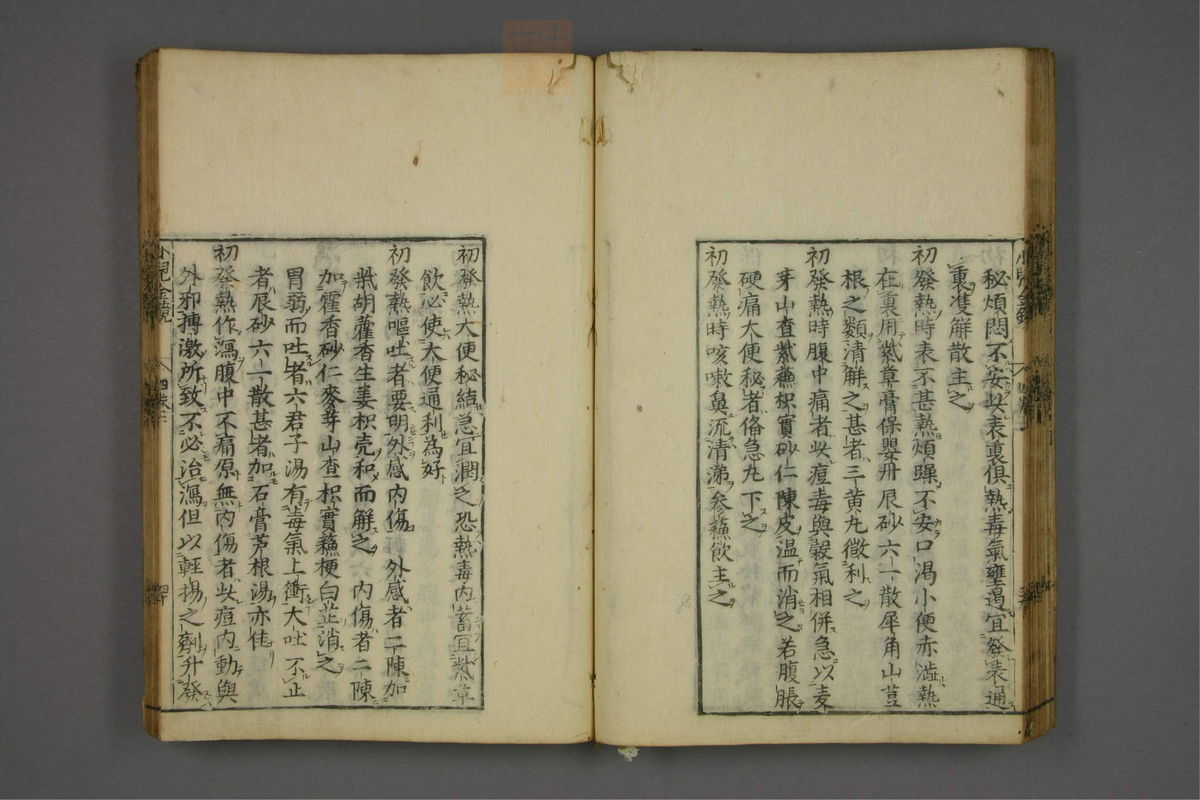 秘煩悶不安此表裏俱熱毒氣壅遏宜發表通
裏隻解散主之
初發熱時表不甚熱煩躁不安口渴小便赤澁熱
在裏用紫草膏保嬰丹辰砂六一散犀角山荳
根之類清解之甚者三黄丸微利之
初發熱時腹中痛者此痘毒與穀氣相併急以麦
芽山査紫蘓枳實砂仁陳皮温而消之若腹脹
硬痛大便秘者俻急丸下之
初發熱時咳嗽鼻流清涕參蘓飲主之
初發熱大便秘結急宜潤之恐熱毒内蓄宜紫草
飲必使大便通利為好
初發熱嘔吐者要明外感内傷外感者二陳加
柴胡藿香生姜枳壳和而解之内傷者二陳
加藿香砂仁麥芽山査枳實蘓梗白芷消之
胃弱而吐者六君子湯有毒氣上衝大吐不止
者辰砂六一散甚者加石膏芦根湯亦佳
初發熱作瀉腹中不痛原無内傷者此痘内動與
外邪搏激所致不必治瀉但以輕揚之劑升發
小兒金鏡
四卷三